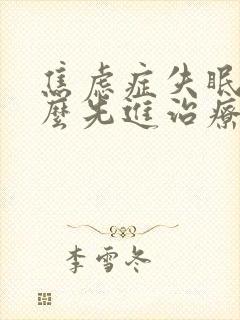 焦虑症失眠
麽先進治療
李雪冬